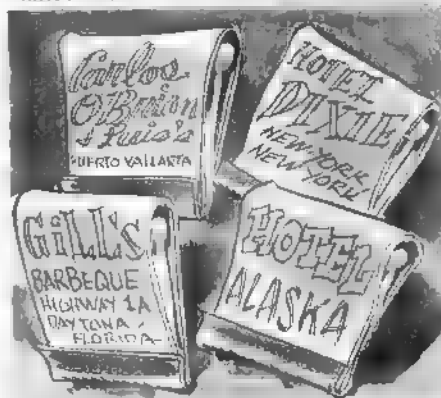 Carlos
O'Brian
& Luis's
PUERTO VALLARTA
HOTEL
DIXIE
NEW YORK
NEW YORK
GILL'S
BARBEQUE
HIGHWAY 1A
DAYTONA,
FLORIDA
HOTEL
ALASKA